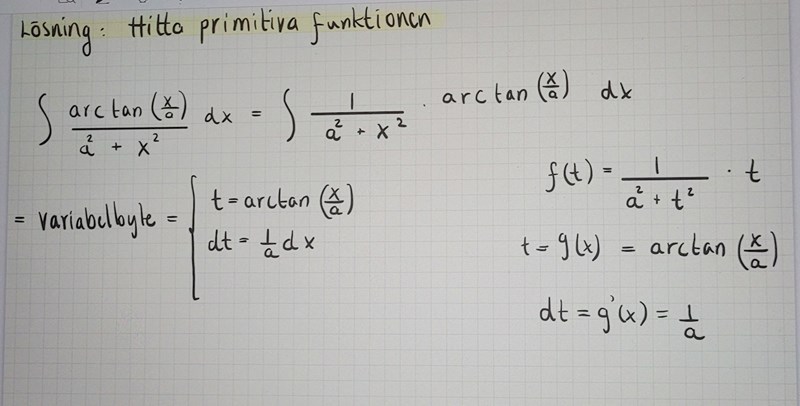 Lösning: Hitta primitiva funktionen
∫ arctan(x/a) / (a² + x²) dx = ∫ 1/(a² + x²) · arctan(x/a) dx
f(t) = 1/(a² + t²) · t
= variabelbyte = { t = arctan(x/a)
dt = 1/a dx
t = g(x) = arctan(x/a)
dt = g'(x) = 1/a